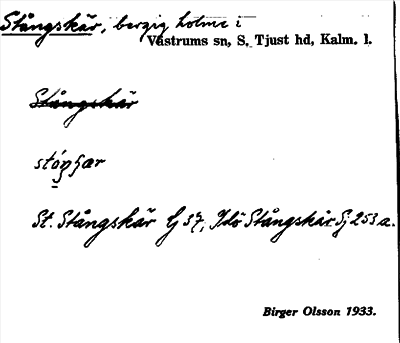 Stångskär, bergig holme i
Västrums sn, S. Tjust hd, Kalm. l.
Stångskär
St. Stångskär G 37, Idö Stångskär Sj 253 a.
Birger Olsson 1933.